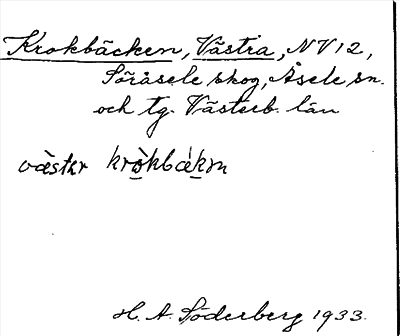 Krokbäcken, Västra, NV12,
Söråsele skog, Åsele sn.
och tg. Västerb. län
vàstr kròkbákn
H. A. Söderberg 1933.